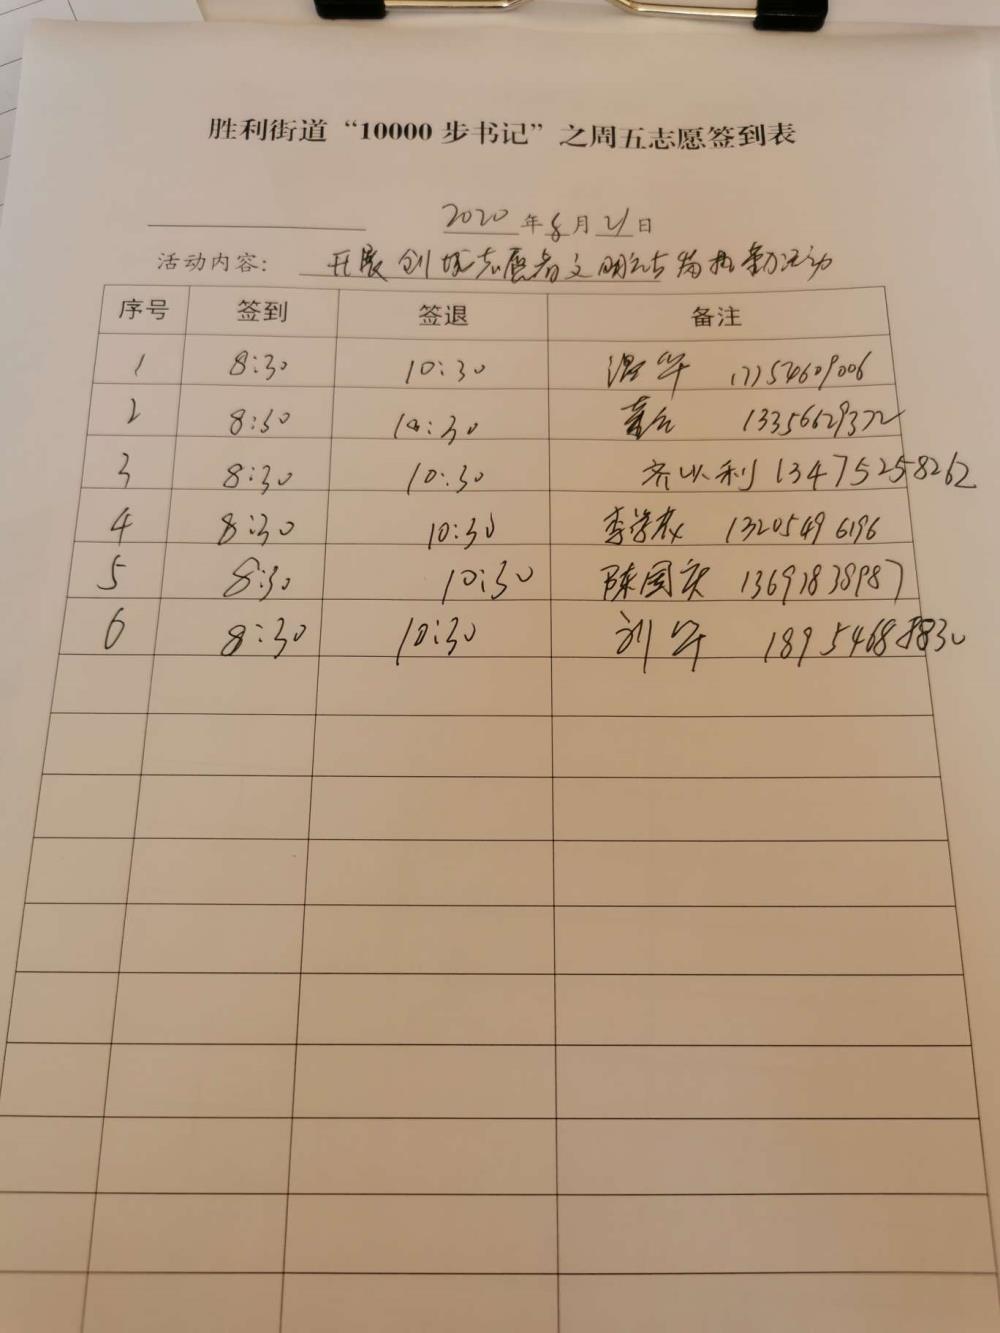 胜利街道“10000步书记”之周五志愿签到表
2020年8月21日
活动内容: 开展创城志愿者文明站岗执勤活动
序号 签到 签退 备注
1 8:30 10:30 温华 17754609006
2 8:30 10:30 13356629372
3 8:30 10:30 齐以利 13475258262
4 8:30 10:30 李学 13205496196
5 8:30 10:30 陈国庆 13697838987
6 8:30 10:30 刘军 18954688830